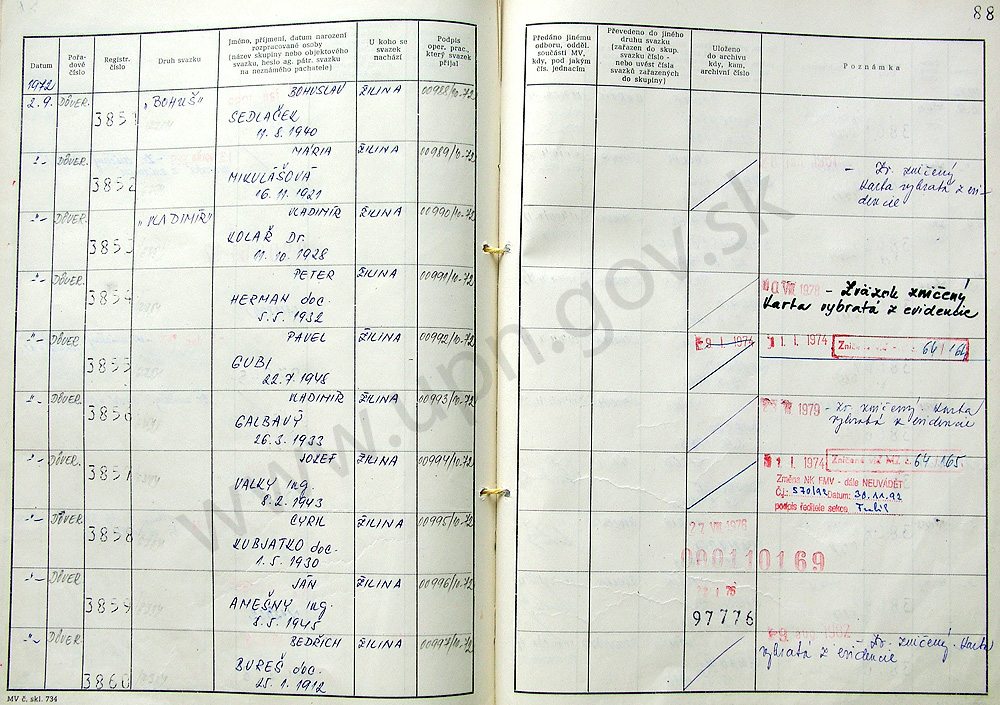 88
Datum
Pořadové číslo
Registr. číslo
Druh svazku
Jméno, příjmení, datum narození
rozpracované osoby
(název skupiny nebo objektového
svazku, heslo ag. pátr. svazku
na neznámého pachatele)
U koho se
svazek
nachází
Podpis
oper. prac.,
který svazek
přijal
Předáno jinému
odboru, odděl.
součásti MV,
kdy, pod jakým
čís. jednacím
Převedeno do jiného
druhu svazku
(zařazen do skup.
svazku číslo -
nebo uvést čísla
svazků zařazených
do skupiny)
Uloženo
do archivu
kdy, kam,
archivní číslo
Poznámka
1972
2.9. DŎVER. 3851 „BOHUŠ" BOHUSLAV ŽILINA 00988/10-72
SEDLAČEK
11.8.1940
-"- DŎVER. 3852 MÁRIA ŽILINA 00989/10-72
MIKULÁŠOVÁ
16.11.1921
- Zv. zničený
Karta vybratá z evi-
dencie
-"- DŎVER. 3853 „VLADIMÍR" VLADIMÍR ŽILINA 00990/10-72
KOLAŘ Dr.
11.10.1928
-"- DŎVER. 3854 PETER ŽILINA 00991/10-72
HERMAN doc.
5.5.1932
VIII 1978 - Zväzok zničený
Karta vybratá z evidencie
-"- DŎVER 3855 PAVEL ŽILINA 00992/10-72
GUBI
22.7.1948
I. 1974
1 1. I. 1974 64/166
-"- DŎVER. 3856 VLADIMÍR ŽILINA 00993/10-72
GALBAVÝ
26.3.1933
1979 - Zv. zničený. Karta
vybratá z evidencie
-"- DŎVER. 3857 JOZEF ŽILINA 00994/10-72
VALKY ing.
8.2.1943
1. I. 1974 64/165
Změna NK FMV - dále NEUVÁDĚT
Čj.: 570/92 Datum: 30.11.92
podpis ředitele sekce
-"- DŎVER. 3858 CYRIL ŽILINA 00995/10-72
KUBJATKO doc.
1.5.1930
27 VIII 1976
000110169
-"- DŎVER. 3859 JÁN ŽILINA 00996/10-72
AMEŠNÝ ing.
8.5.1945
97776
-"- DŎVER. 3860 BEDŘICH ŽILINA 00997/10-72
BUREŠ doc.
25.1.1912
- Zv. zničený. Karta
vybratá z evidencie
MV č. skl. 734
www.upn.gov.sk